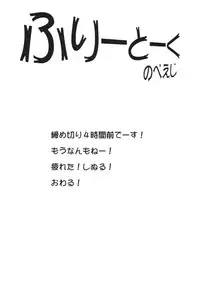 ふりーとーく
のぺえじ
締め切り4時間前でーす！
もうなんもねー！
疲れた！しぬる！
おわる！